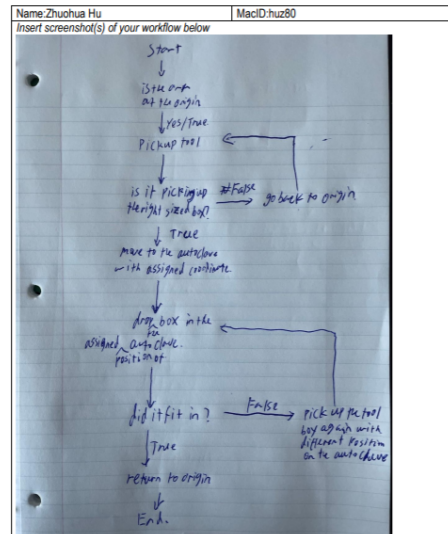 Name:Zhuohua Hu
MacID:huz80
Insert screenshot(s) of your workflow below
Start
is the arm
at the origin
Yes/True
Pickup tool
is it picking up
the right sized box?
False
go back to origin
True
move to the autoclave
with assigned coordinate
drop box in the
assigned the autoclave.
position of
did it fit in?
False
pick up the tool
box again with
different position
on the autoclave
True
return to origin
End.